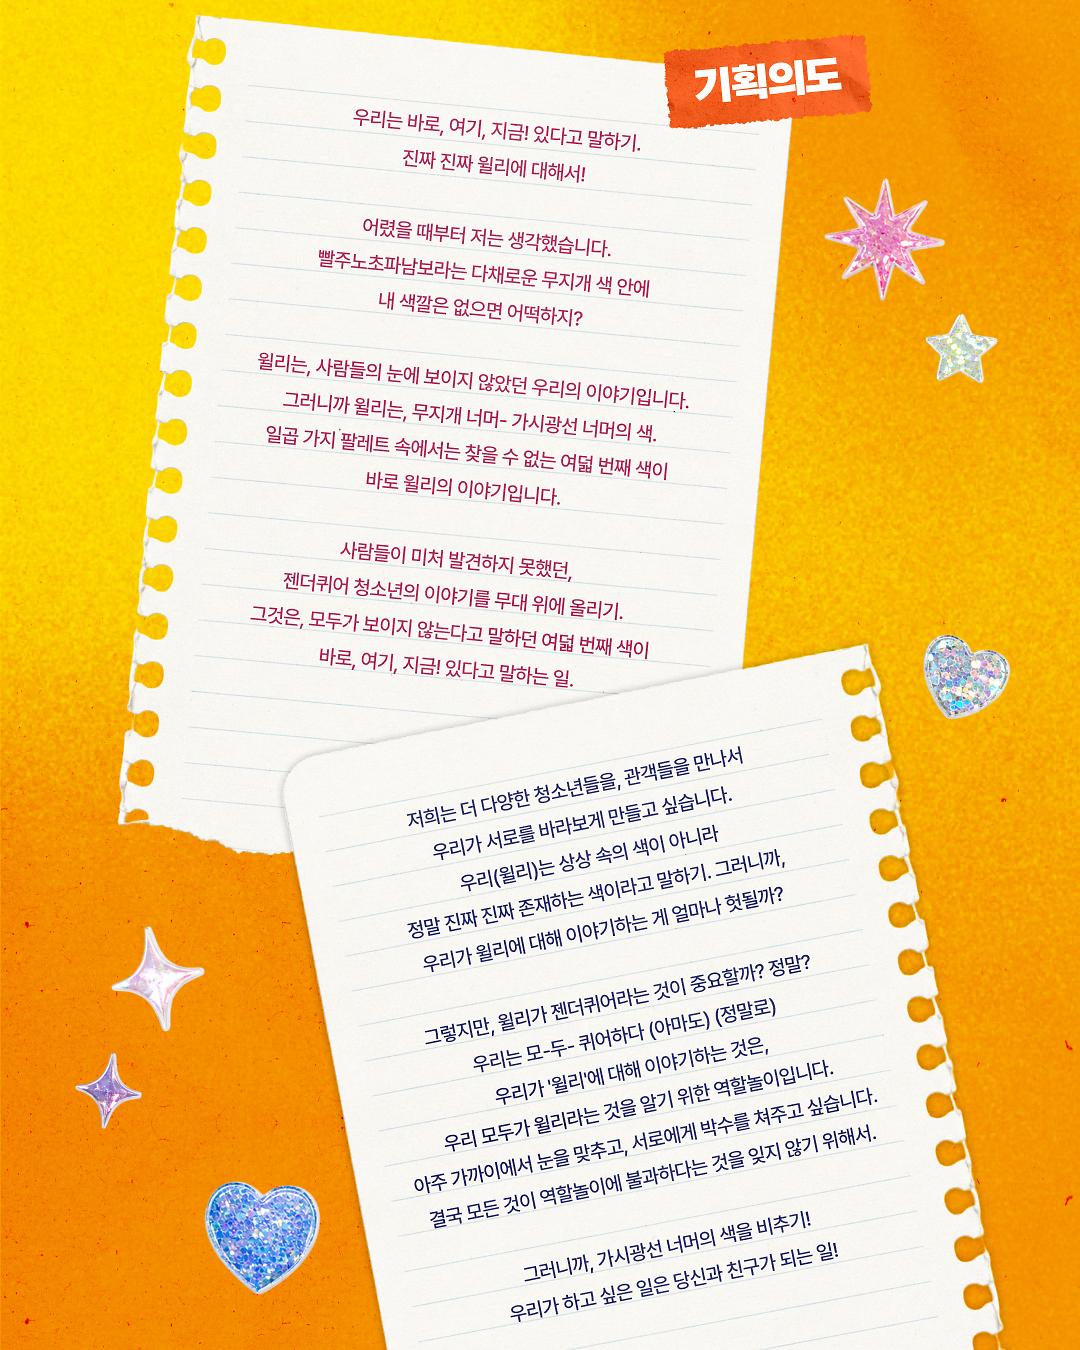 기획의도
우리는 바로, 여기, 지금! 있다고 말하기.
진짜 진짜 윌리에 대해서!
어렸을 때부터 저는 생각했습니다.
빨주노초파남보라는 다채로운 무지개 색 안에
내 색깔은 없으면 어떡하지?
윌리는, 사람들의 눈에 보이지 않았던 우리의 이야기입니다.
그러니까 윌리는, 무지개 너머- 가시광선 너머의 색.
일곱 가지 팔레트 속에서는 찾을 수 없는 여덟 번째 색이
바로 윌리의 이야기입니다.
사람들이 미처 발견하지 못했던,
젠더퀴어 청소년의 이야기를 무대 위에 올리기.
그것은, 모두가 보이지 않는다고 말하던 여덟 번째 색이
바로, 여기, 지금! 있다고 말하는 일.
저희는 더 다양한 청소년들을, 관객들을 만나서
우리가 서로를 바라보게 만들고 싶습니다.
우리(윌리)는 상상 속의 색이 아니라
정말 진짜 진짜 존재하는 색이라고 말하기. 그러니까,
우리가 윌리에 대해 이야기하는 게 얼마나 헛될까?
그렇지만, 윌리가 젠더퀴어라는 것이 중요할까? 정말?
우리는 모-두- 퀴어하다 (아마도) (정말로)
우리가 '윌리'에 대해 이야기하는 것은,
우리 모두가 윌리라는 것을 알기 위한 역할놀이입니다.
아주 가까이에서 눈을 맞추고, 서로에게 박수를 쳐주고 싶습니다.
결국 모든 것이 역할놀이에 불과하다는 것을 잊지 않기 위해서.
그러니까, 가시광선 너머의 색을 비추기!
우리가 하고 싶은 일은 당신과 친구가 되는 일!